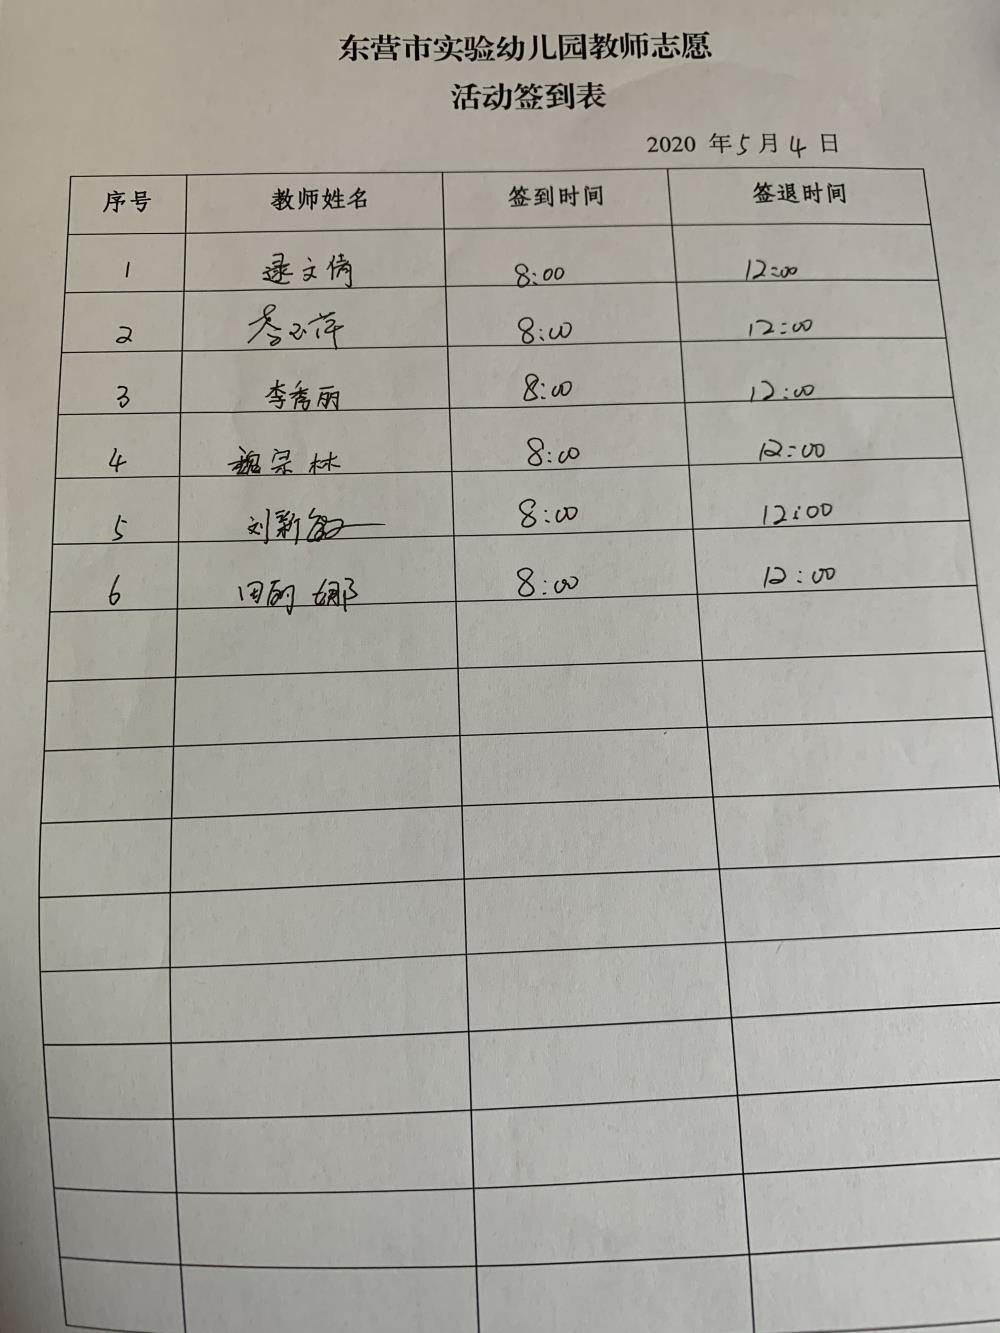 东营市实验幼儿园教师志愿
活动签到表
2020 年 5 月 4 日
序号 教师姓名 签到时间 签退时间
1 逯文倩 8:00 12:00
2 8:00 12:00
3 李秀丽 8:00 12:00
4 魏宗林 8:00 12:00
5 刘新 8:00 12:00
6 田 娜 8:00 12:00